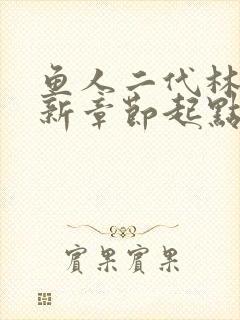 鱼人二代林
新章節起點
賓果賓果